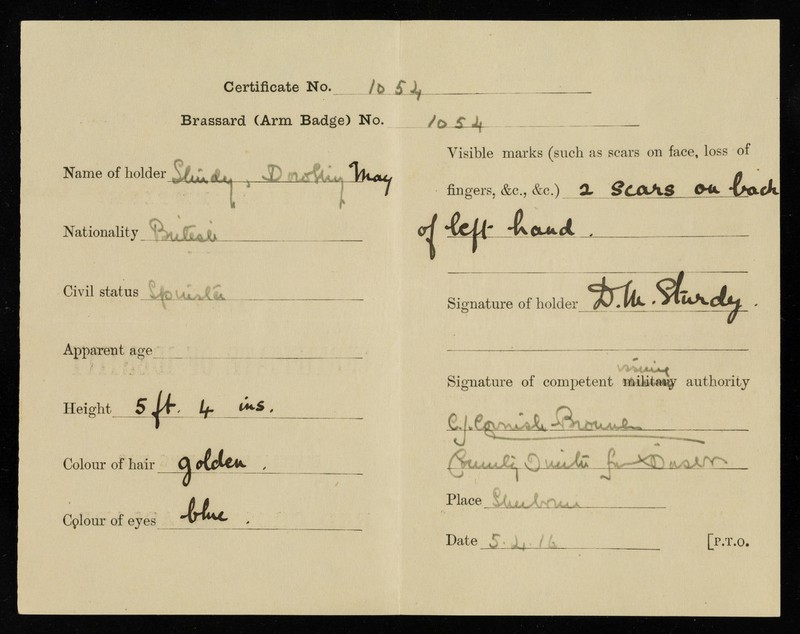 Certificate No. 1054
Brassard (Arm Badge) No. 1054
Name of holder Sturdy, Dorothy May
Nationality British
Civil status Spinster
Apparent age
Height 5 ft. 4 ins.
Colour of hair golden.
Colour of eyes blue.
Visible marks (such as scars on face, loss of
fingers, &c., &c.) 2 scars on back
of left hand.
Signature of holder D.M. Sturdy.
issuing
Signature of competent military authority
C.J. Cornish-Browne
County for
Place Sherborne
Date 5.4.16 [P.T.O.